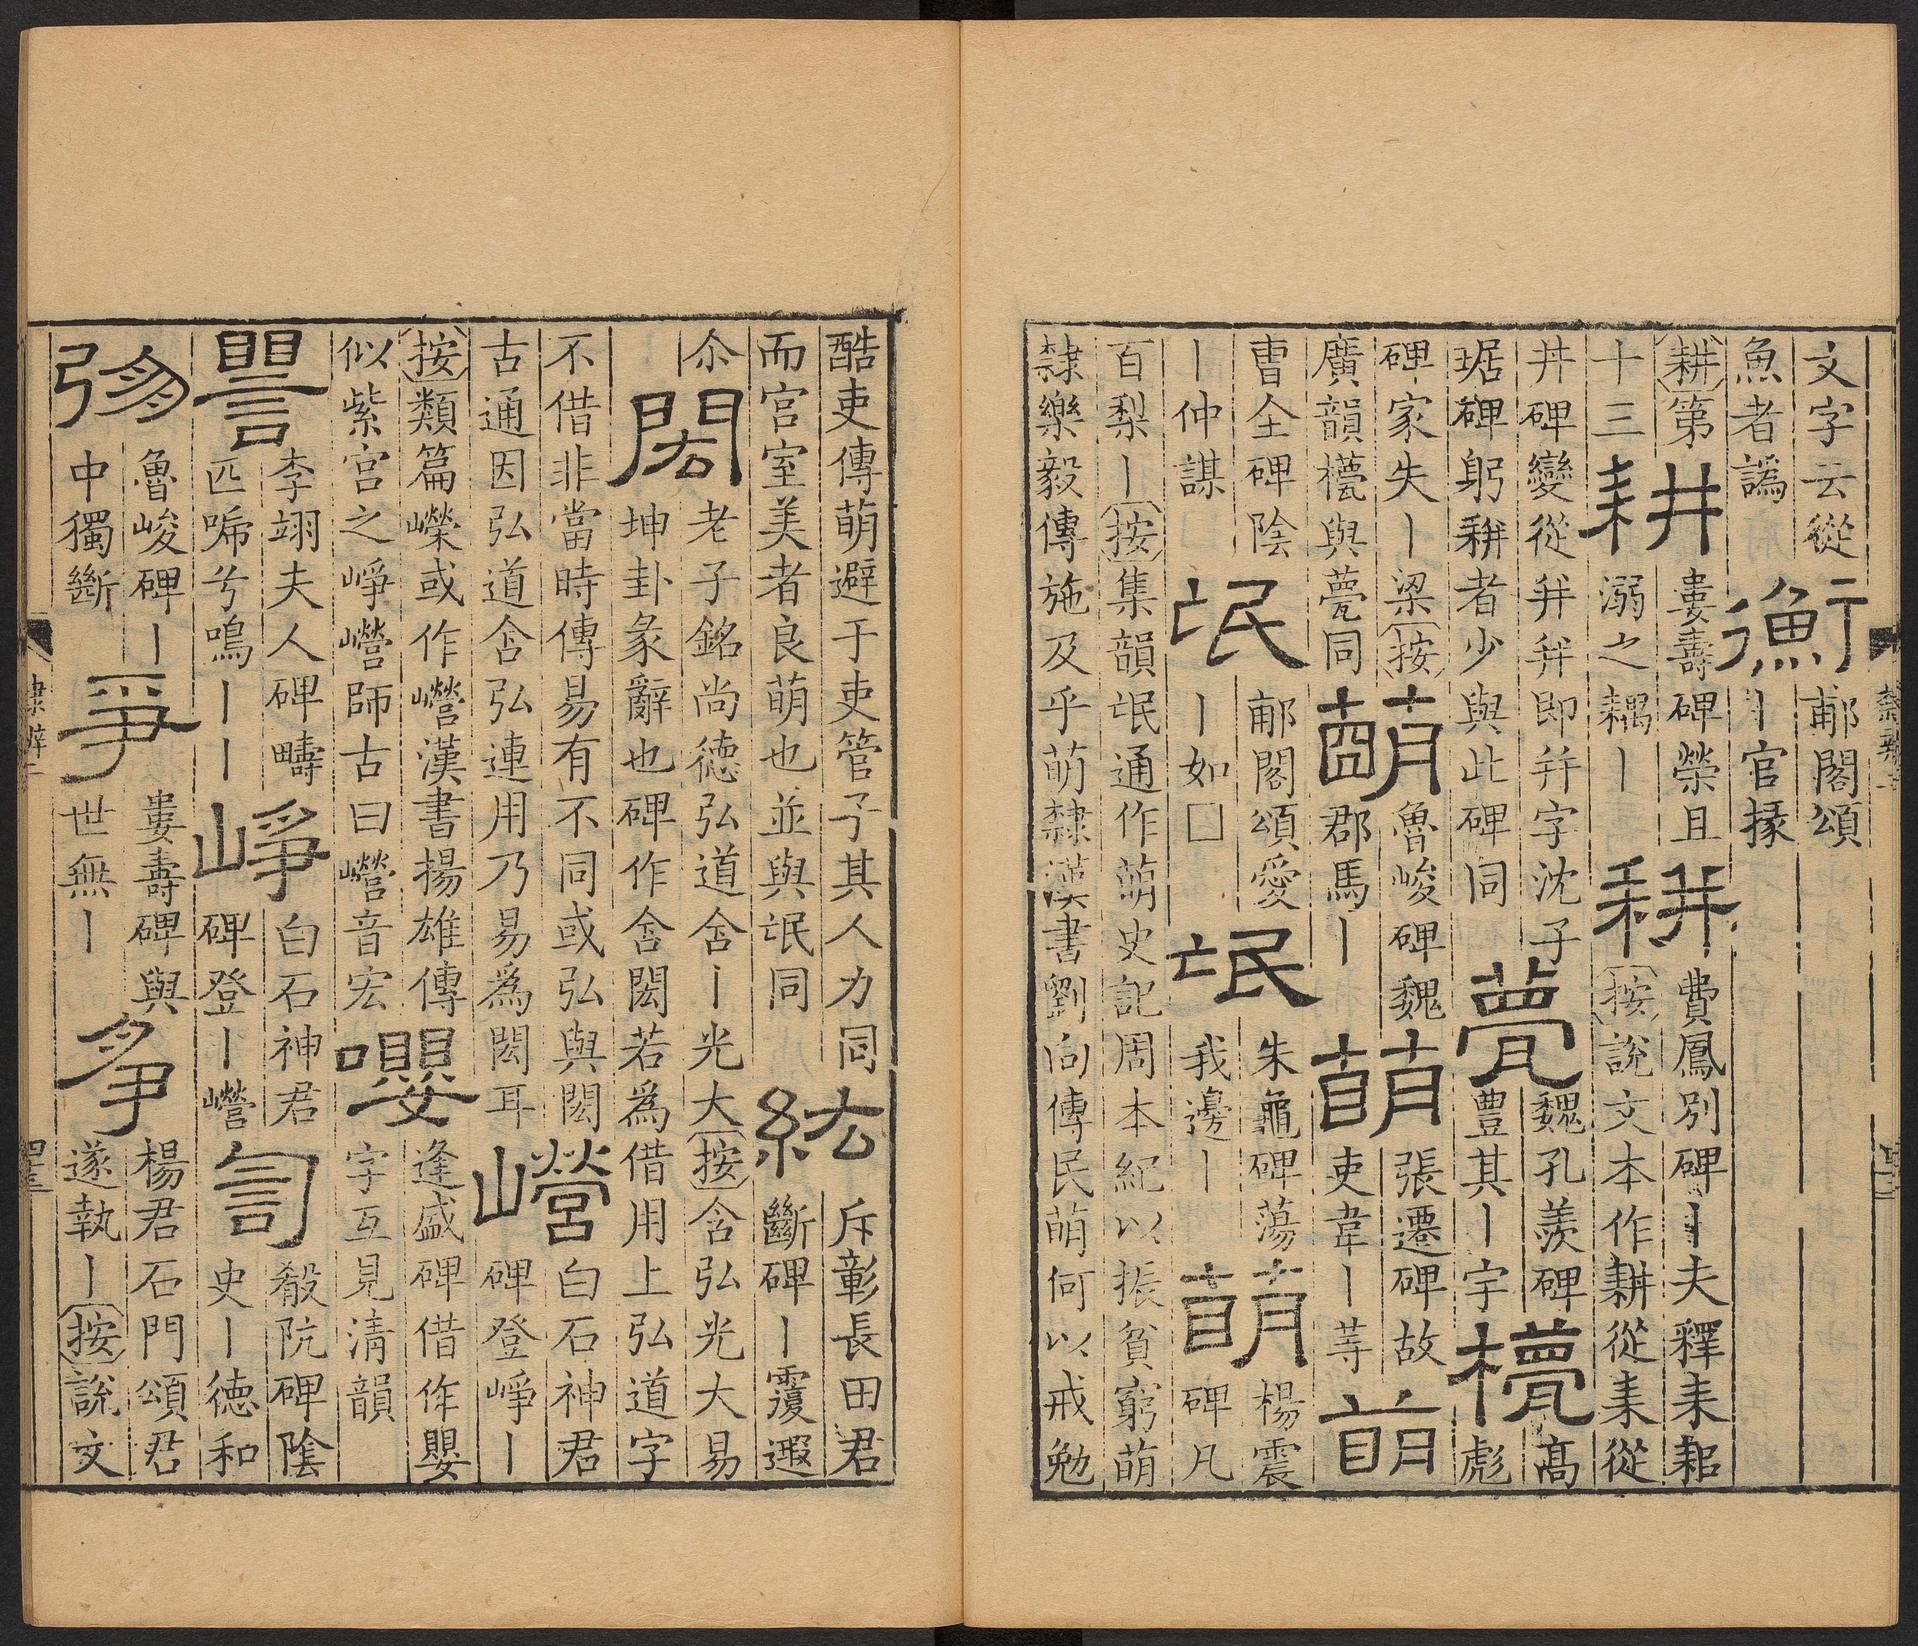 文字云從
魚者譌
衡
郙閣頌
丨官掾
耕第
十三
耕
婁壽碑榮且
溺之耦丨
耕
費鳳別碑丨夫釋耒耜
按說文本作耕從耒從
丼碑變從幷幷即幷字沈子
琚碑躬耕者少與此碑同
甍
魏孔羨碑
豊其丨宇
高
彪
碑家失丨梁按
廣韻櫋與甍同
萌
魯峻碑魏
郡馬丨
萌
張遷碑故
吏韋丨等
萌
曹全碑陰
丨仲謀
氓
郙閣頌愛
丨如□
氓
朱龜碑蕩
我邊丨
萌
楊震
碑凡
百梨丨按集韻氓通作萌史記周本紀以振貧窮萌
隸樂毅傳施及乎萌隸漢書劉向傳民萌何以戒勉
酷吏傳萌避于吏管子其人力同
而宮室美者良萌也並與氓同
紘
斥彰長田君
斷碑丨覆遐
尒
閎
老子銘尚德弘道舍丨光大按含弘光大易
坤卦彖辭也碑作含閎若為借用上弘道字
不借非當時傳易有不同或弘與閎
古通因弘道含弘連用乃易為閎耳
巆
白石神君
碑登崢丨
按類篇嶸或作巆漢書揚雄傳
似紫宮之崢巆師古曰巆音宏
嚶
逢盛碑借作嬰
字互見清韻
譻
李翊夫人碑疇
匹啼兮鳴丨丨
崢
白石神君
碑登丨巆
訇
殽阬碑陰
史丨德和
魯峻碑丨
中獨斷
爭
婁壽碑與
世無丨
爭
楊君石門頌君
遂執丨按說文